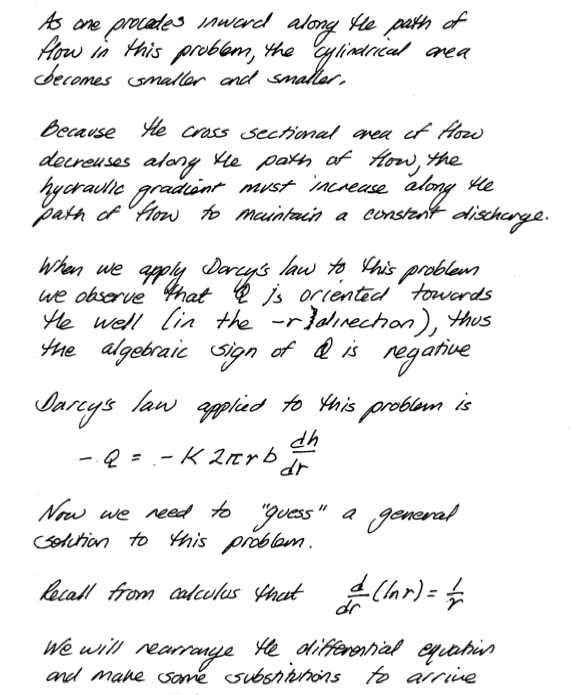 As one procedes inward along the path of
flow in this problem, the cylindrical area
becomes smaller and smaller.
Because the cross sectional area of flow
decreases along the path of flow, the
hydraulic gradient must increase along the
path of flow to maintain a constant discharge.
When we apply Darcy's law to this problem
we observe that Q is oriented towards
the well (in the -r direction), thus
the algebraic sign of Q is negative
Darcy's law applied to this problem is
- Q = - K 2πrb dh/dr
Now we need to "guess" a general
solution to this problem.
Recall from calculus that d/dr (ln r) = 1/r
We will rearrange the differential equation
and make some substitutions to arrive